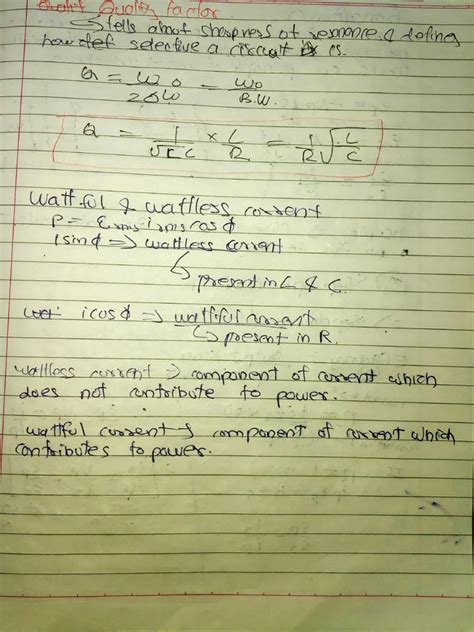 Quality factor
→ tells about sharpness of resonance & defines
how selective a circuit is.
Q = ω0/2Δω = ω0/B.W.
Q = 1/√LC × L/R = 1/R √L/C
Wattful & wattless current
P = Erms·irms cosφ
I sinφ ⇒ wattless current
↳ present in L & C.
icosφ ⇒ wattful current
↳ present in R.
wattless current → component of current which
does not contribute to power.
wattful current → component of current which
contributes to power.